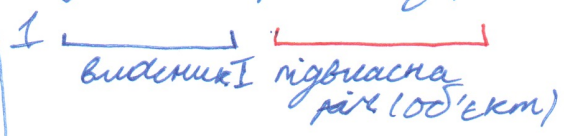 1
власник I підвласна
річ (об'єкт)